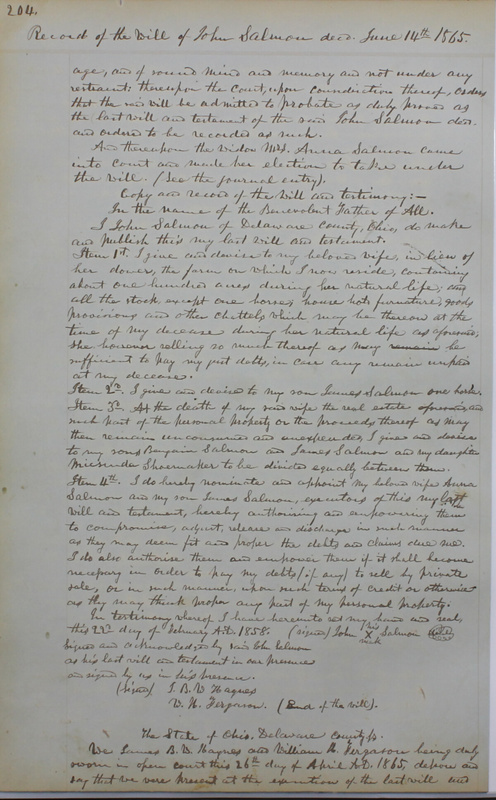 204.
Record of the Will of John Salmon decd. June 14th 1865.
age, and of sound mind and memory and not under any
restraint; thereupon the Court, upon consideration thereof, orders
that the said will be admitted to Probate as duly proven as
the last will and testament of the said John Salmon decd.
and ordered to be recorded as such.
And thereupon the widow Mrs. Anna Salmon came
into court and made her election to take under
the will. (See the journal entry).
Copy and record of the will and testimony:—
In the name of the Benevolent Father of All.
I John Salmon of Delaware County, Ohio, do make
and publish this my last will and testament.
Item 1st. I give and devise to my beloved wife, in lieu of
her dower, the farm on which I now reside, containing
about one hundred acres during her natural life; and
all the stock except one horse, house hold furniture, goods
provisions and other chattels which may be thereon at the
time of my decease during her natural life as aforesaid;
she however selling so much thereof as may remain be
sufficient to pay my just debts, in case any remain unpaid
at my decease.
Item 2d. I give and devise to my son James Salmon one horse.
Item 3d. At the death of my said wife the real estate aforesaid, and
such part of the personal property or the proceeds thereof as may
then remain unconsumed and unexpended, I give and devise
to my sons Salmon and James Salmon and my daughter
Shoemaker to be divided equally between them.
Item 4th. I do hereby nominate and appoint my beloved wife Anna
Salmon and my son James Salmon, executors of this my last
will and testament, hereby authorizing and empowering them
to compromise, adjust, release and discharge in such manner
as they may deem fit and proper the debts and claims due me.
I do also authorise them and empower them if it shall become
necessary in order to pay my debts (if any) to sell by private
sale, or in such manner, upon such terms of credit or otherwise
as they may think proper any part of my personal property.
In testimony whereof I have hereunto set my hand and seal,
this 22d day of February A.D. 1858. (signed) John his X mark Salmon
Signed and acknowledged by said John Salmon
as his last will and testament in our presence
and signed by us in his presence.
(Signed) J. B. W. Haynes
W. H. Ferguson. (End of the will).
The State of Ohio, Delaware County ss.
We James B. W. Haynes and William H. Ferguson being duly
sworn in open court this 26th day of April A.D. 1865, depose and
say that we were present at the execution of the last will and